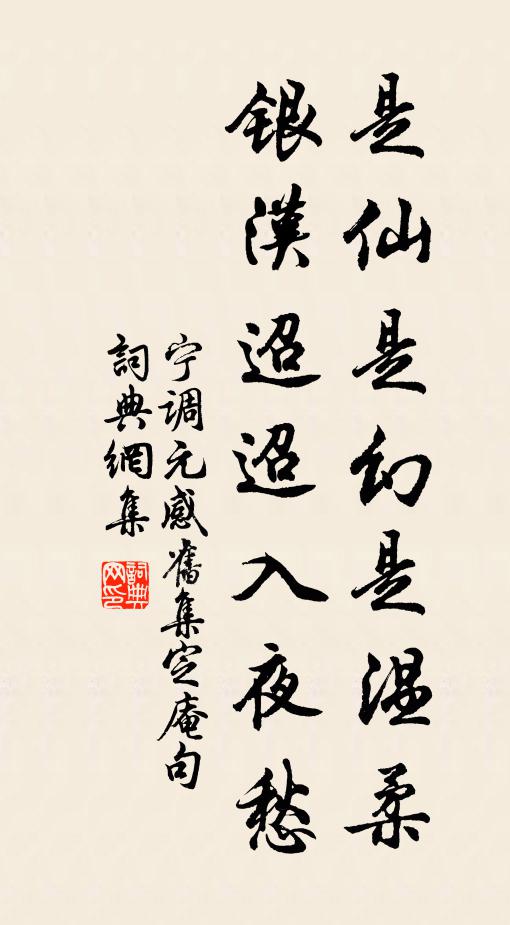 是仙是幻是温柔
銀漢迢迢入夜愁
宁调元感舊集定庵句
詞典網集
詞典網印